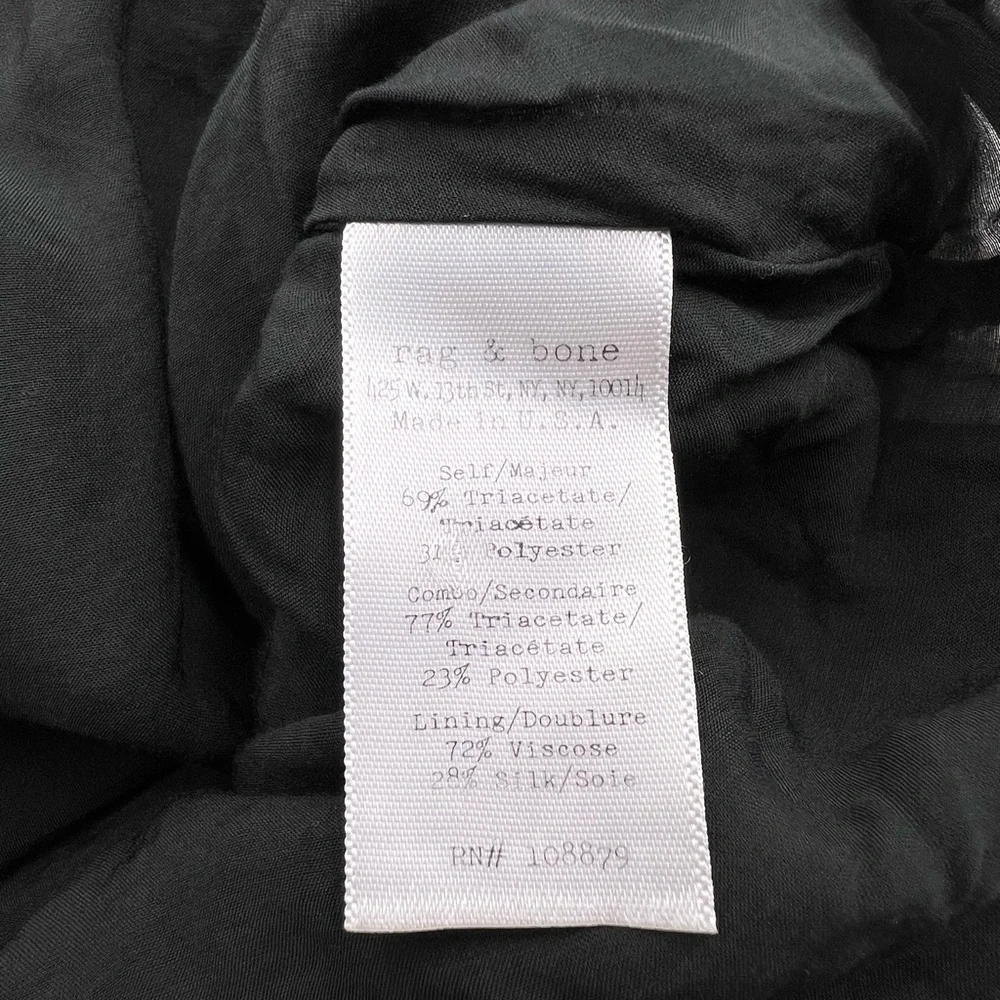 rag & bone
425 W. 13th St, NY, NY, 10014
Made in U.S.A.
Self/Majeur
69% Triacetate/
Triacétate
31% Polyester
Combo/Secondaire
77% Triacetate/
Triacétate
23% Polyester
Lining/Doublure
72% Viscose
28% Silk/Soie
RN# 108879